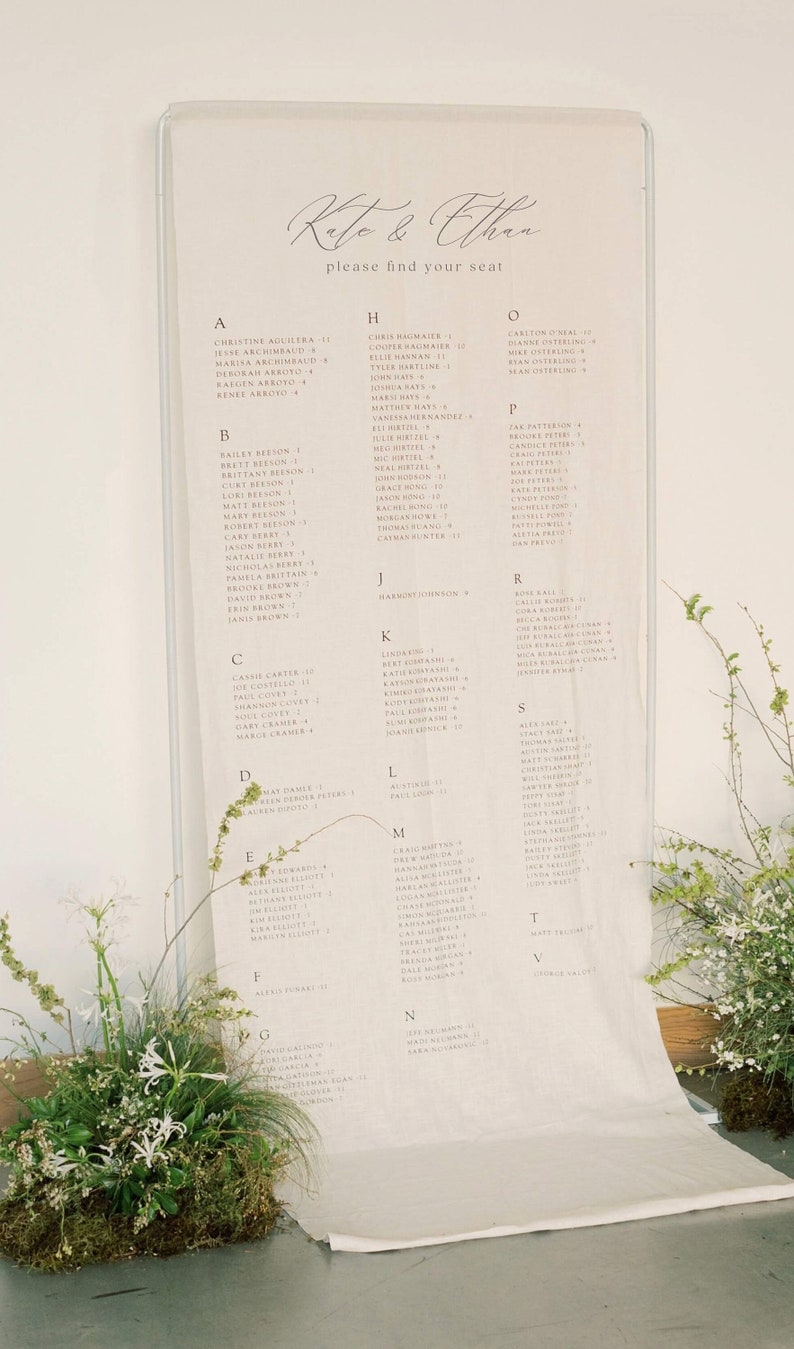 Kate & Ethan
please find your seat
A
CHRISTINE AGUILERA -11
JESSE ARCHIMBAUD -8
MARISA ARCHIMBAUD -8
DEBORAH ARROYO -4
RAEGEN ARROYO -4
RENEE ARROYO -4
B
BAILEY BEESON -1
BRETT BEESON -1
BRITTANY BEESON -1
CURT BEESON -1
LORI BEESON -1
MATT BEESON -1
MARY BEESON -3
ROBERT BEESON -3
CARY BERRY -3
JASON BERRY -3
NATALIE BERRY -3
NICHOLAS BERRY -3
PAMELA BRITTAIN -6
BROOKE BROWN -7
DAVID BROWN -7
ERIN BROWN -7
JANIS BROWN -7
C
CASSIE CARTER -10
JOE COSTELLO -11
PAUL COVEY -2
SHANNON COVEY -2
SOUL COVEY -2
GARY CRAMER -4
MARGE CRAMER -4
D
MAY DAMLE -1
DEBOER PETERS -3
LAUREN DIPOTO -1
E
EDWARDS -4
ADRIENNE ELLIOTT -1
ALEX ELLIOTT -1
BETHANY ELLIOTT -2
JIM ELLIOTT -1
KIM ELLIOTT -1
KIRA ELLIOTT -1
MARILYN ELLIOTT -2
F
ALEXIS FUNAKI -12
G
DAVID GALINDO -1
LORI GARCIA -6
GARCIA -6
GATISON -10
GITTLEMAN-EGAN -12
GLOVER -11
GORDON -7
H
CHRIS HAGMAIER -1
COOPER HAGMAIER -10
ELLIE HANNAN -11
TYLER HARTLINE -1
JOHN HAYS -6
JOSHUA HAYS -6
MARSI HAYS -6
MATTHEW HAYS -6
VANESSA HERNANDEZ -8
ELI HIRTZEL -8
JULIE HIRTZEL -8
MEG HIRTZEL -8
MIC HIRTZEL -8
NEAL HIRTZEL -8
JOHN HODSON -11
GRACE HONG -10
JASON HONG -10
RACHEL HONG -10
MORGAN HOWE -7
THOMAS HUANG -9
CAYMAN HUNTER -11
J
HARMONY JOHNSON -9
K
LINDA KING -3
BERT KOBAYASHI -6
KATIE KOBAYASHI -6
KAYSON KOBAYASHI -6
KIMIKO KOBAYASHI -6
KODY KOBAYASHI -6
PAUL KOBAYASHI -6
SUMI KOBAYASHI -6
JOANIE KRDNICK -10
L
AUSTIN LII -11
PAUL LOGAN -11
M
CRAIG MARTYNS -9
DREW MATSUDA -10
HANNAH MATSUDA -10
ALISA MCALLISTER -5
HARLAN MCALLISTER -4
LOGAN MCALLISTER -5
CHASE MCDONALD -9
SIMON MCQUARRIE -11
RAHSAAN MIDDLETON -12
CAS MILEWSKI -8
SHERI MILEWSKI -8
TRACEY MILER -1
BRENDA MORGAN -9
DALE MORGAN -9
ROSS MORGAN -9
N
JEFF NEUMANN -11
MADI NEUMANN -11
SARA NOVAKOVIC -12
O
CARLTON O'NEAL -10
DIANNE OSTERLING -9
MIKE OSTERLING -9
RYAN OSTERLING -9
SEAN OSTERLING -9
P
ZAK PATTERSON -4
BROOKE PETERS -3
CANDICE PETERS -5
CRAIG PETERS -3
KAI PETERS -5
MARK PETERS -5
ZOE PETERS -5
KATE PETERSON -5
CYNDY POND -7
MICHELLE POND -1
RUSSELL POND -7
PATTI POWELL -6
ALETIA PREVO -7
DAN PREVO -7
R
ROSE RALL -7
CALLIE ROBERTS -11
CORA ROBERTS -10
BECCA ROGERS -1
CHE RUBALCAVA-CUNAN -4
JEFF RUBALCAVA-CUNAN -4
LUIS RUBALCAVA-CUNAN -4
MICA RUBALCAVA-CUNAN -4
MILES RUBALCAVA-CUNAN -4
JENNIFER RYMAS -2
S
ALEX SAEZ -4
STACY SAEZ -4
THOMAS SALYEL -1
AUSTIN SANTINI -10
MATT SCHARRER -11
CHRISTIAN SHARP -1
WILL SHEERIN -10
SAWYER SHROCK -10
PEPPY SISAY -1
TORI SISAY -1
DUSTY SKELLETT -5
JACK SKELLETT -5
LINDA SKELLETT -5
STEPHANIE STAMNES -11
BAILEY STEVENS -12
DUSTY SKELLETT
JACK SKELLETT
LINDA SKELLETT -5
JUDY SWEET -6
T
MATT
V
GEORGE VALDY